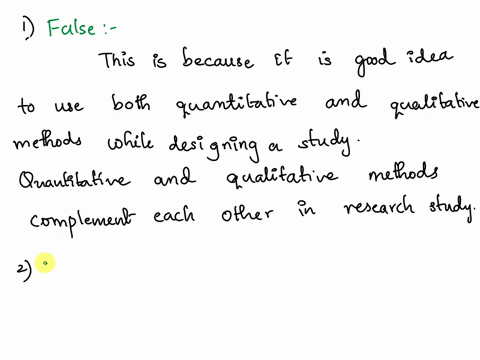 1) False :-
This is because It is good idea
to use both quantitative and qualitative
methods while designing a study.
Quantitative and qualitative methods
complement each other in research study.
2)